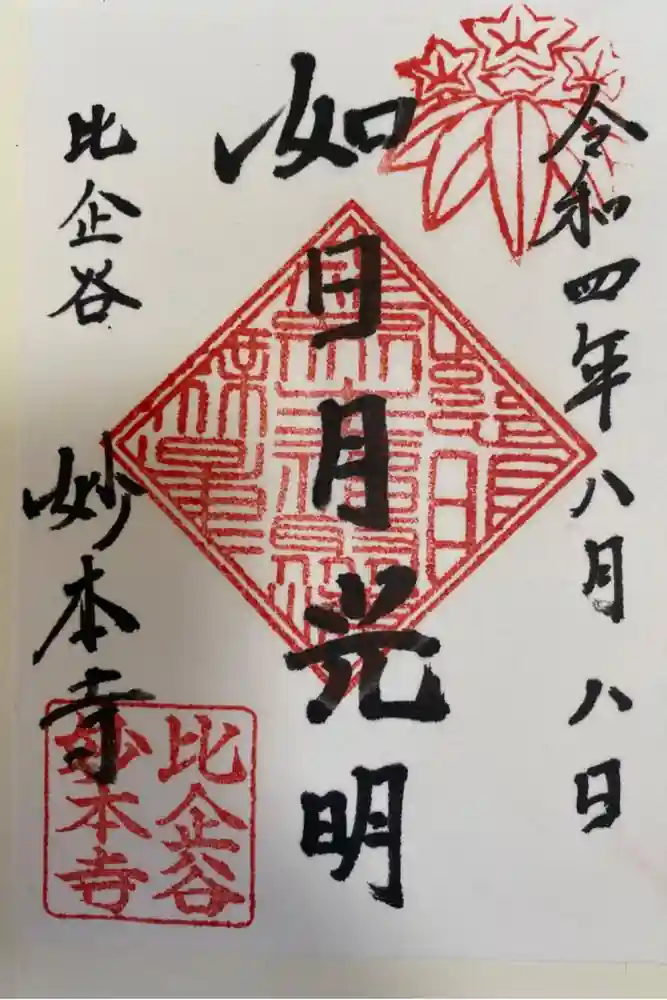 令和四年八月八日
如日月光明
比企谷
妙本寺
比企谷
妙本寺